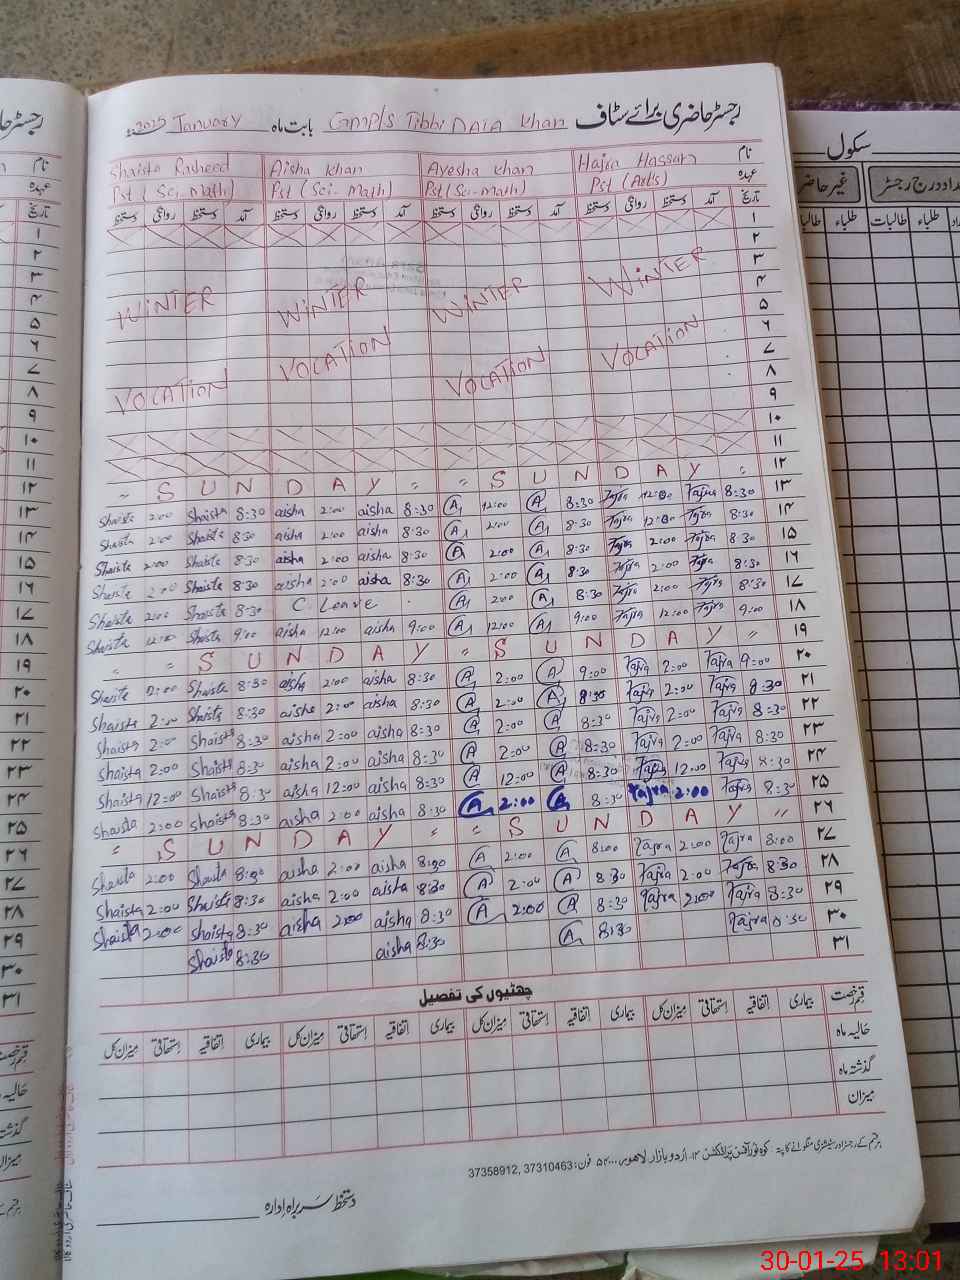 رجسٹر حاضری برائے سٹاف GMP/S Tibbi DATA Khan بابت ماہ January 2025
نام Hajra Hassan Ayesha Khan Aisha Khan Shaista Rasheed
عہدہ Pst (Arts) Pst (Sci-math) Pst (Sci-Math) Pst Sci, math)
تاریخ آمد دستخط روانگی دستخط آمد دستخط روانگی دستخط آمد دستخط روانگی دستخط آمد دستخط روانگی دستخط
۱
۲
۳
۴ WINTER WINTER WINTER WINTER
۵
۶
۷ VOCATION VOCATION VOCATION VOCATION
۸
۹
۱۰
۱۱
۱۲ " S U N D A Y " " S U N D A Y "
۱۳ Shaista 2:00 Shaista 8:30 aisha 2:00 aisha 8:30 A 12:00 A 8:30 Tajra 12:00 Tajra 8:30
۱۴ Shaista 2:00 Shaista 8:30 aisha 2:00 aisha 8:30 A 2:00 A 8:30 Tajra 12:00 Tajra 8:30
۱۵ Shaista 2:00 Shaista 8:30 aisha 2:00 aisha 8:30 A 2:00 A 8:30 Tajra 2:00 Tajra 8:30
۱۶ Shaista 2:00 Shaista 8:30 aisha 2:00 aisha 8:30 A 2:00 A 8:30 Tajra 2:00 Tajra 8:30
۱۷ Shaista 2:00 Shaista 8:30 C. Leave A 2:00 A 8:30 Tajra 2:00 Tajra 8:30
۱۸ Shaista 12:00 Shaista 9:00 aisha 12:00 aisha 9:00 A 12:00 A 9:00 Tajra 12:00 Tajra 9:00
۱۹ " " S U N D A Y " S U N D A Y "
۲۰ Shaista 2:00 Shaista 8:30 aisha 2:00 aisha 8:30 A 2:00 A 9:00 Tajra 2:00 Tajra 9:00
۲۱ Shaista 2:00 Shaista 8:30 aisha 2:00 aisha 8:30 A 2:00 A 8:30 Tajra 2:00 Tajra 8:30
۲۲ Shaista 2:00 Shaista 8:30 aisha 2:00 aisha 8:30 A 2:00 A 8:30 Tajra 2:00 Tajra 8:30
۲۳ Shaista 2:00 Shaista 8:30 aisha 2:00 aisha 8:30 A 2:00 A 8:30 Tajra 2:00 Tajra 8:30
۲۴ Shaista 12:00 Shaista 8:30 aisha 12:00 aisha 8:30 A 12:00 A 8:30 Tajra 12:00 Tajra 8:30
۲۵ Shaista 2:00 Shaista 8:30 aisha 2:00 aisha 8:30 A 2:00 A 8:30 Tajra 2:00 Tajra 8:30
۲۶ " S U N D A Y " " S U N D A Y "
۲۷ Shaista 2:00 Shaista 8:30 aisha 2:00 aisha 8:30 A 2:00 A 8:00 Tajra 2:00 Tajra 8:00
۲۸ Shaista 2:00 Shaista 8:30 aisha 2:00 aisha 8:30 A 2:00 A 8:30 Tajra 2:00 Tajra 8:30
۲۹ Shaista 2:00 Shaista 8:30 aisha 2:00 aisha 8:30 A 2:00 A 8:30 Tajra 2:00 Tajra 8:30
۳۰ Shaista 8:30 aisha 8:30 A 8:30 Tajra 8:30
۳۱
چھٹیوں کی تفصیل
قسم رخصت بیماری اتفاقیہ استحقاقی میزان کل بیماری اتفاقیہ استحقاقی میزان کل بیماری اتفاقیہ استحقاقی میزان کل بیماری اتفاقیہ استحقاقی میزان کل
حالیہ ماہ
گذشتہ ماہ
میزان
ہر قسم کے رجسٹر اور سٹیشنری منگوانے کا پتہ: کوہ نور آفسن پرنٹرز اردو بازار لاہور فون: 37310463, 37358912
دستخط سربراہ ادارہ
سکول
تعداد درج رجسٹر غیر حاضر
طلباء طالبات طلباء طالبات
30-01-25 13:01